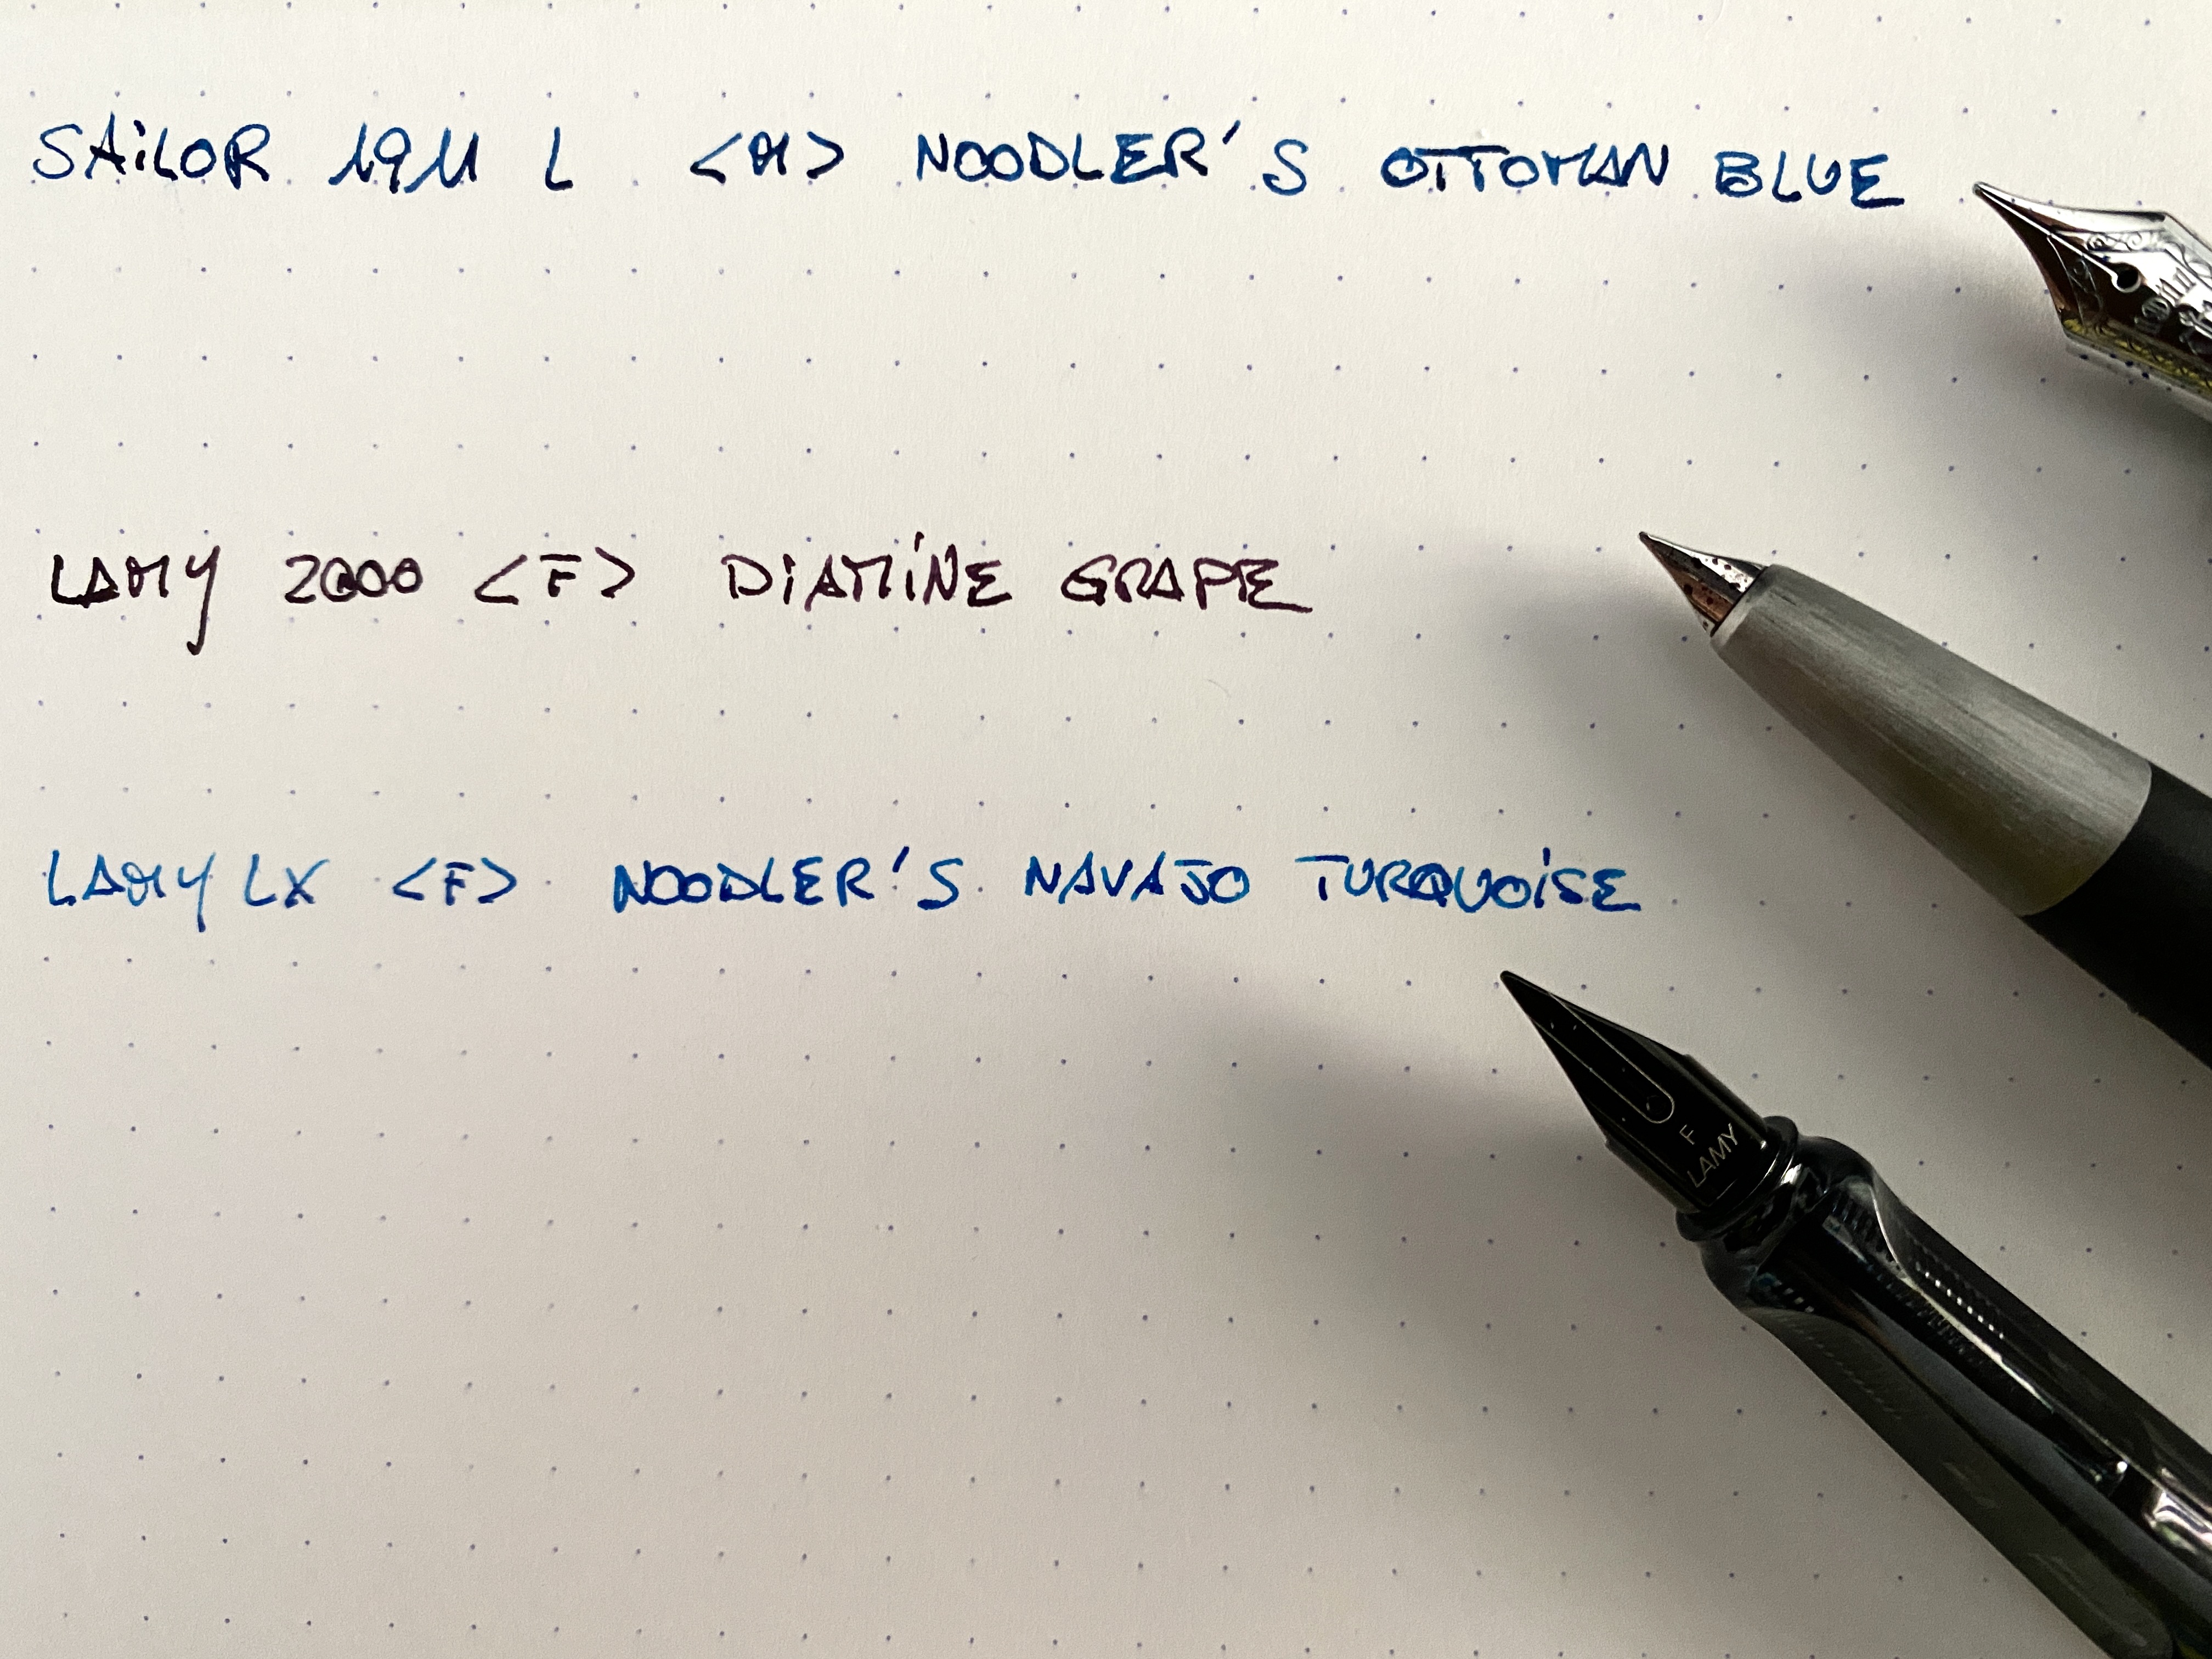 SAiLOR 1911 L <M> NOODLER'S OTTOMAN BLUE
LAMY 2000 <F> DiAMiNE GRAPE
LAMY LX <F> NOODLER'S NAVAJO TURQUOiSE
F
LAMY